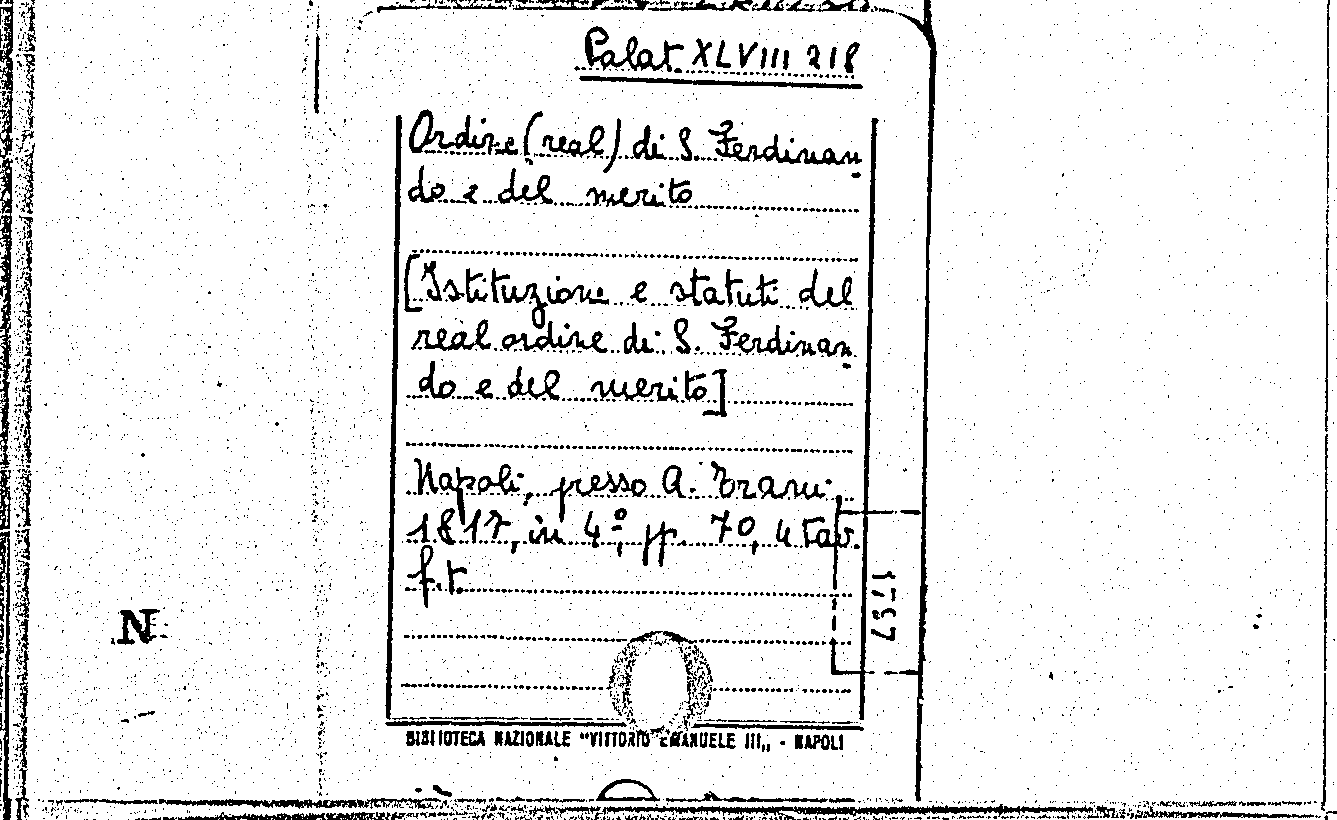 Palat XLVIII 218
Ordine (real) di S. Ferdinan
do e del merito
[Istituzione e statuti del
real ordine di S. Ferdinan
do e del merito]
Napoli, presso A. Trani,
1817, in 4°, pp. 70, 4 tav.
f.t.
N
BIBLIOTECA NAZIONALE "VITTORIO EMANUELE III„ - NAPOLI